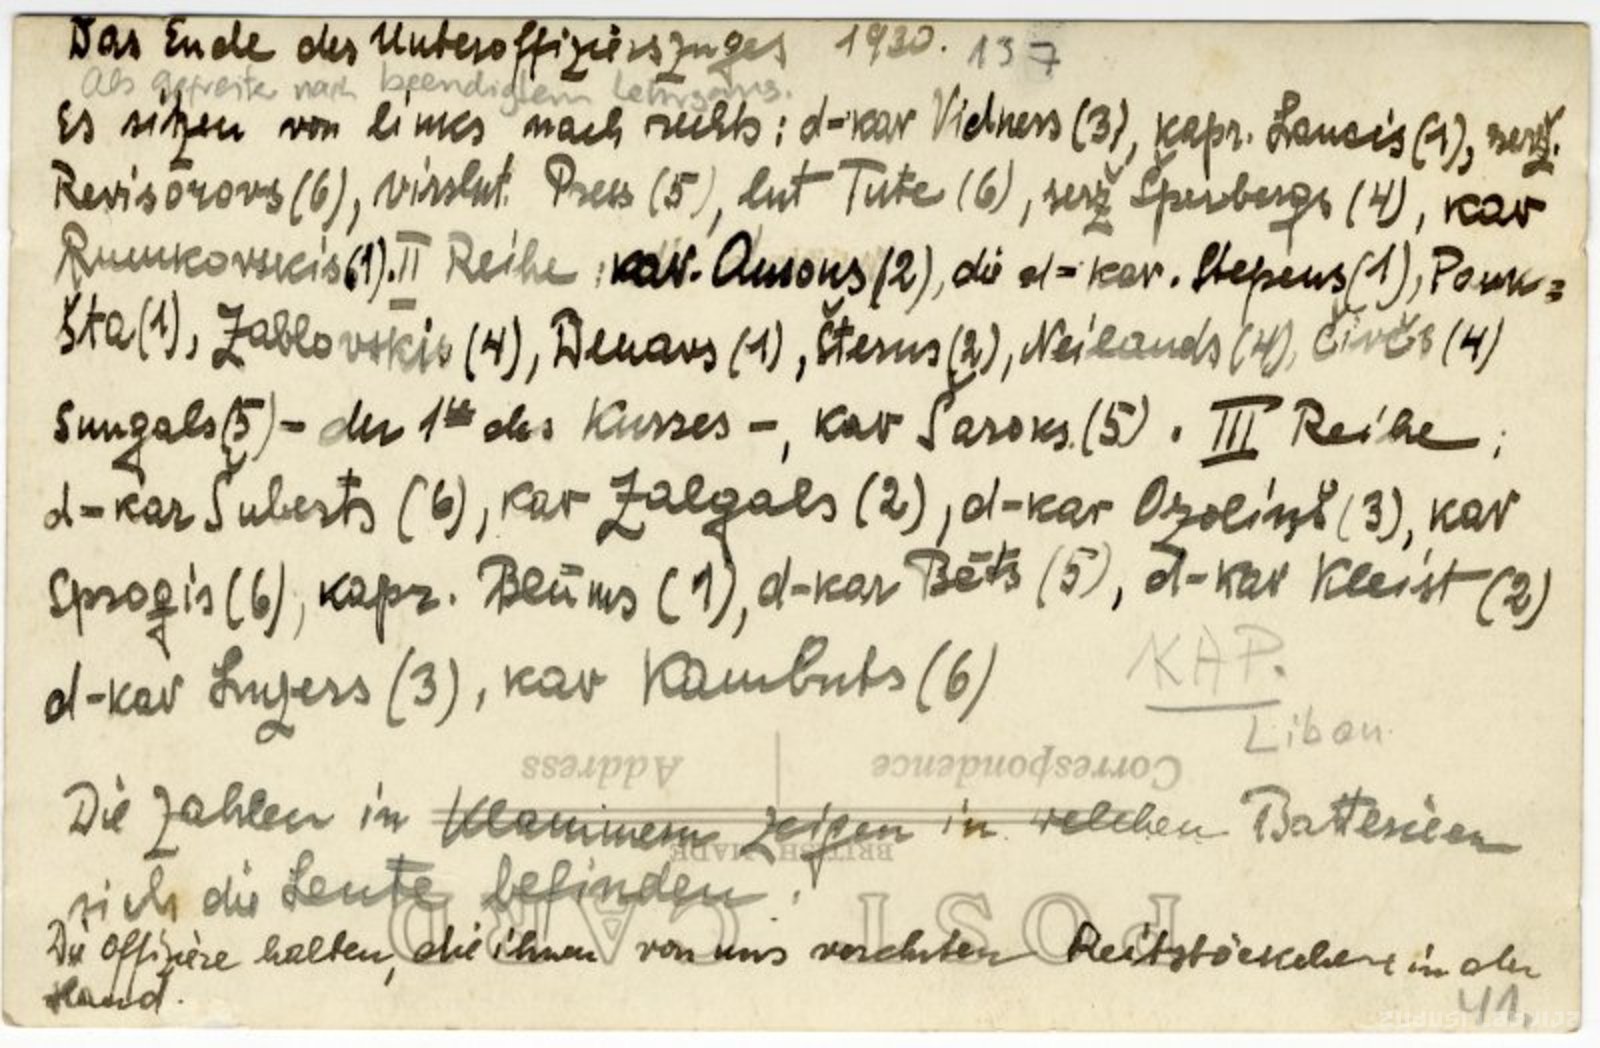 Das Ende des Unteroffizierszuges 1930. 137
Als Gefreite nach beendigtem Lehrgang.
Es sitzen von links nach rechts: d-kav Vidners (3), kapr. Lancis (1), serž.
Revisorovs (6), virslut. Press (5), lut Tute (6), serž Šperbergs (4), kav
Rumkovskis (1). II Reihe: kav. Ansons (2), die d=kav. Stepens (1), Pauk=
šta (1), Zablovskis (4), Denavs (1), Šterns (2), Neilands (4), Čivčs (4)
Sungals (5) – der 1te des Kurses –, kav Šaroks (5). III Reihe;
d-kav Šuberts (6), kav Zalgals (2), d-kav Ozoliņš (3), kav
Sproģis (6), kapr. Blūms (1), d-kav Bēts (5), d-kav Kleist (2)
d-kav Luzers (3), kav Kambuts (6)
KAP.
Libau
Correspondence Address
Die Zahlen in Klammern zeigen in welchen Batterieen
BRITISH MADE
sich die Leute befinden.
POST CARD
Die Offiziere halten, die ihnen von uns verehrten Reitstöckchen in der
Hand.
41
zudusilatvija.lv